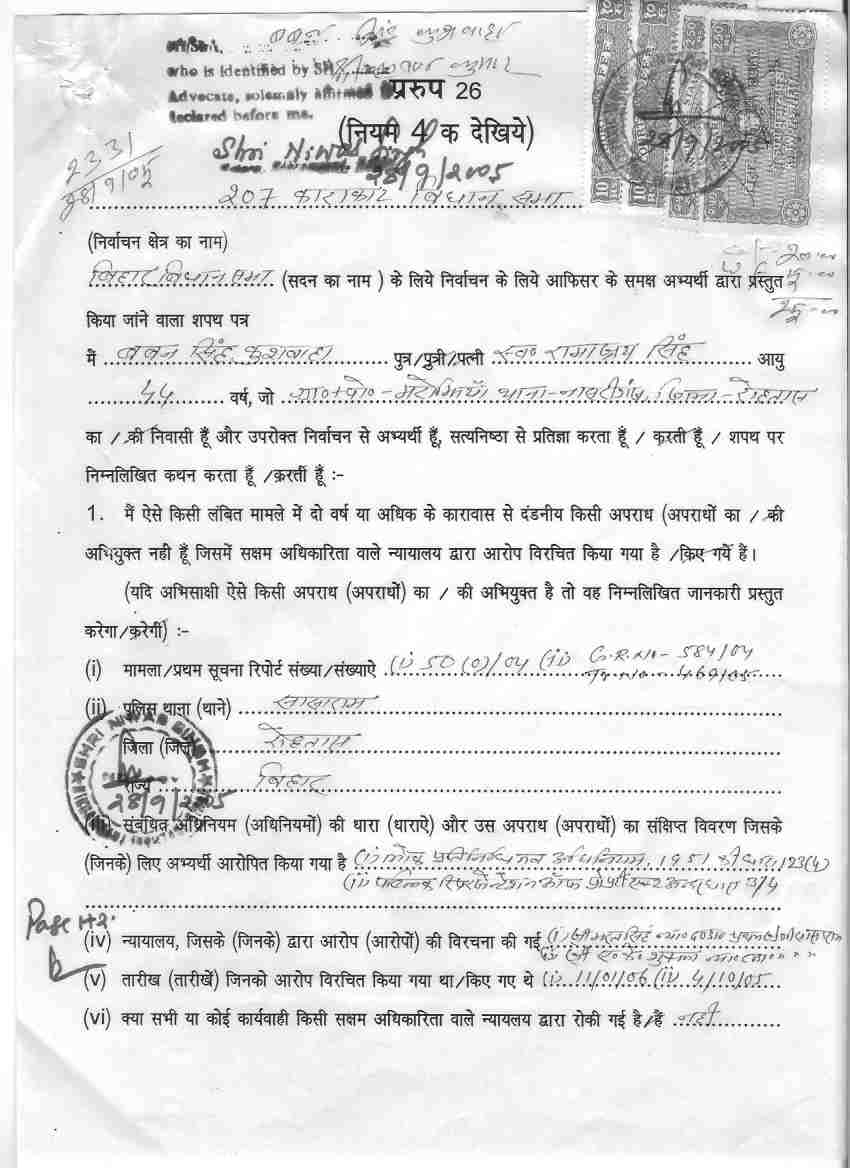 बबन सिंह कुशवाहा
who is identified by Sh. कुमार
Advocate, solemnly affirmed
declared before me.
Shri Niwas Singh
28/9/2005
2331
28/9/05
28/9/2005
प्ररुप 26
(नियम 4 क देखिये)
207 काराकाट विधान सभा
(निर्वाचन क्षेत्र का नाम)
बिहार विधान सभा (सदन का नाम ) के लिये निर्वाचन के लिये आफिसर के समक्ष अभ्यर्थी द्वारा प्रस्तुत
किया जांने वाला शपथ पत्र
में बबन सिंह कुशवाहा पुत्र/पुत्री/पत्नी स्व० रामाश्रय सिंह आयु
44 वर्ष, जो ग्रा०+पो०- थाना- जिला-रोहतास
का / की निवासी हूँ और उपरोक्त निर्वाचन से अभ्यर्थी हूँ, सत्यनिष्ठा से प्रतिज्ञा करता हूँ / करती हूँ / शपथ पर
निम्नलिखित कथन करता हूँ /करती हूँ :-
1. मैं ऐसे किसी लंबित मामले में दो वर्ष या अधिक के कारावास से दंडनीय किसी अपराध (अपराधों का / की
अभियुक्त नही हूँ जिसमें सक्षम अधिकारिता वाले न्यायालय द्वारा आरोप विरचित किया गया है /किए गयें हैं।
(यदि अभिसाक्षी ऐसे किसी अपराध (अपराधों) का / की अभियुक्त है तो वह निम्नलिखित जानकारी प्रस्तुत
करेगा/करेगी) :-
(i) मामला/प्रथम सूचना रिपोर्ट संख्या/संख्याऐ (i) 50(0)/04 (ii) G.R.No- 584/04
Tr. No- 469/05
(ii) पुलिस थाना (थाने) सासाराम
जिला (जिले) रोहतास
राज्य बिहार
SHRI NIWAS SINGH
28/9/2005
(iii) संबंधित अधिनियम (अधिनियमों) की धारा (धाराऐ) और उस अपराध (अपराधों) का संक्षिप्त विवरण जिसके
(जिनके) लिए अभ्यर्थी आरोपित किया गया है (i) लोक प्रतिनिधित्व अधिनियम, 1951 की धारा 123(4)
(ii) 3/4
Page No 2
(iv) न्यायालय, जिसके (जिनके) द्वारा आरोप (आरोपों) की विरचना की गई (i)
(ii)
(v) तारीख (तारीखें) जिनको आरोप विरचित किया गया था/किए गए थे (i) 11/01/06 (ii) 4/10/05
(vi) क्या सभी या कोई कार्यवाही किसी सक्षम अधिकारिता वाले न्यायलय द्वारा रोकी गई है/हैं नहीं